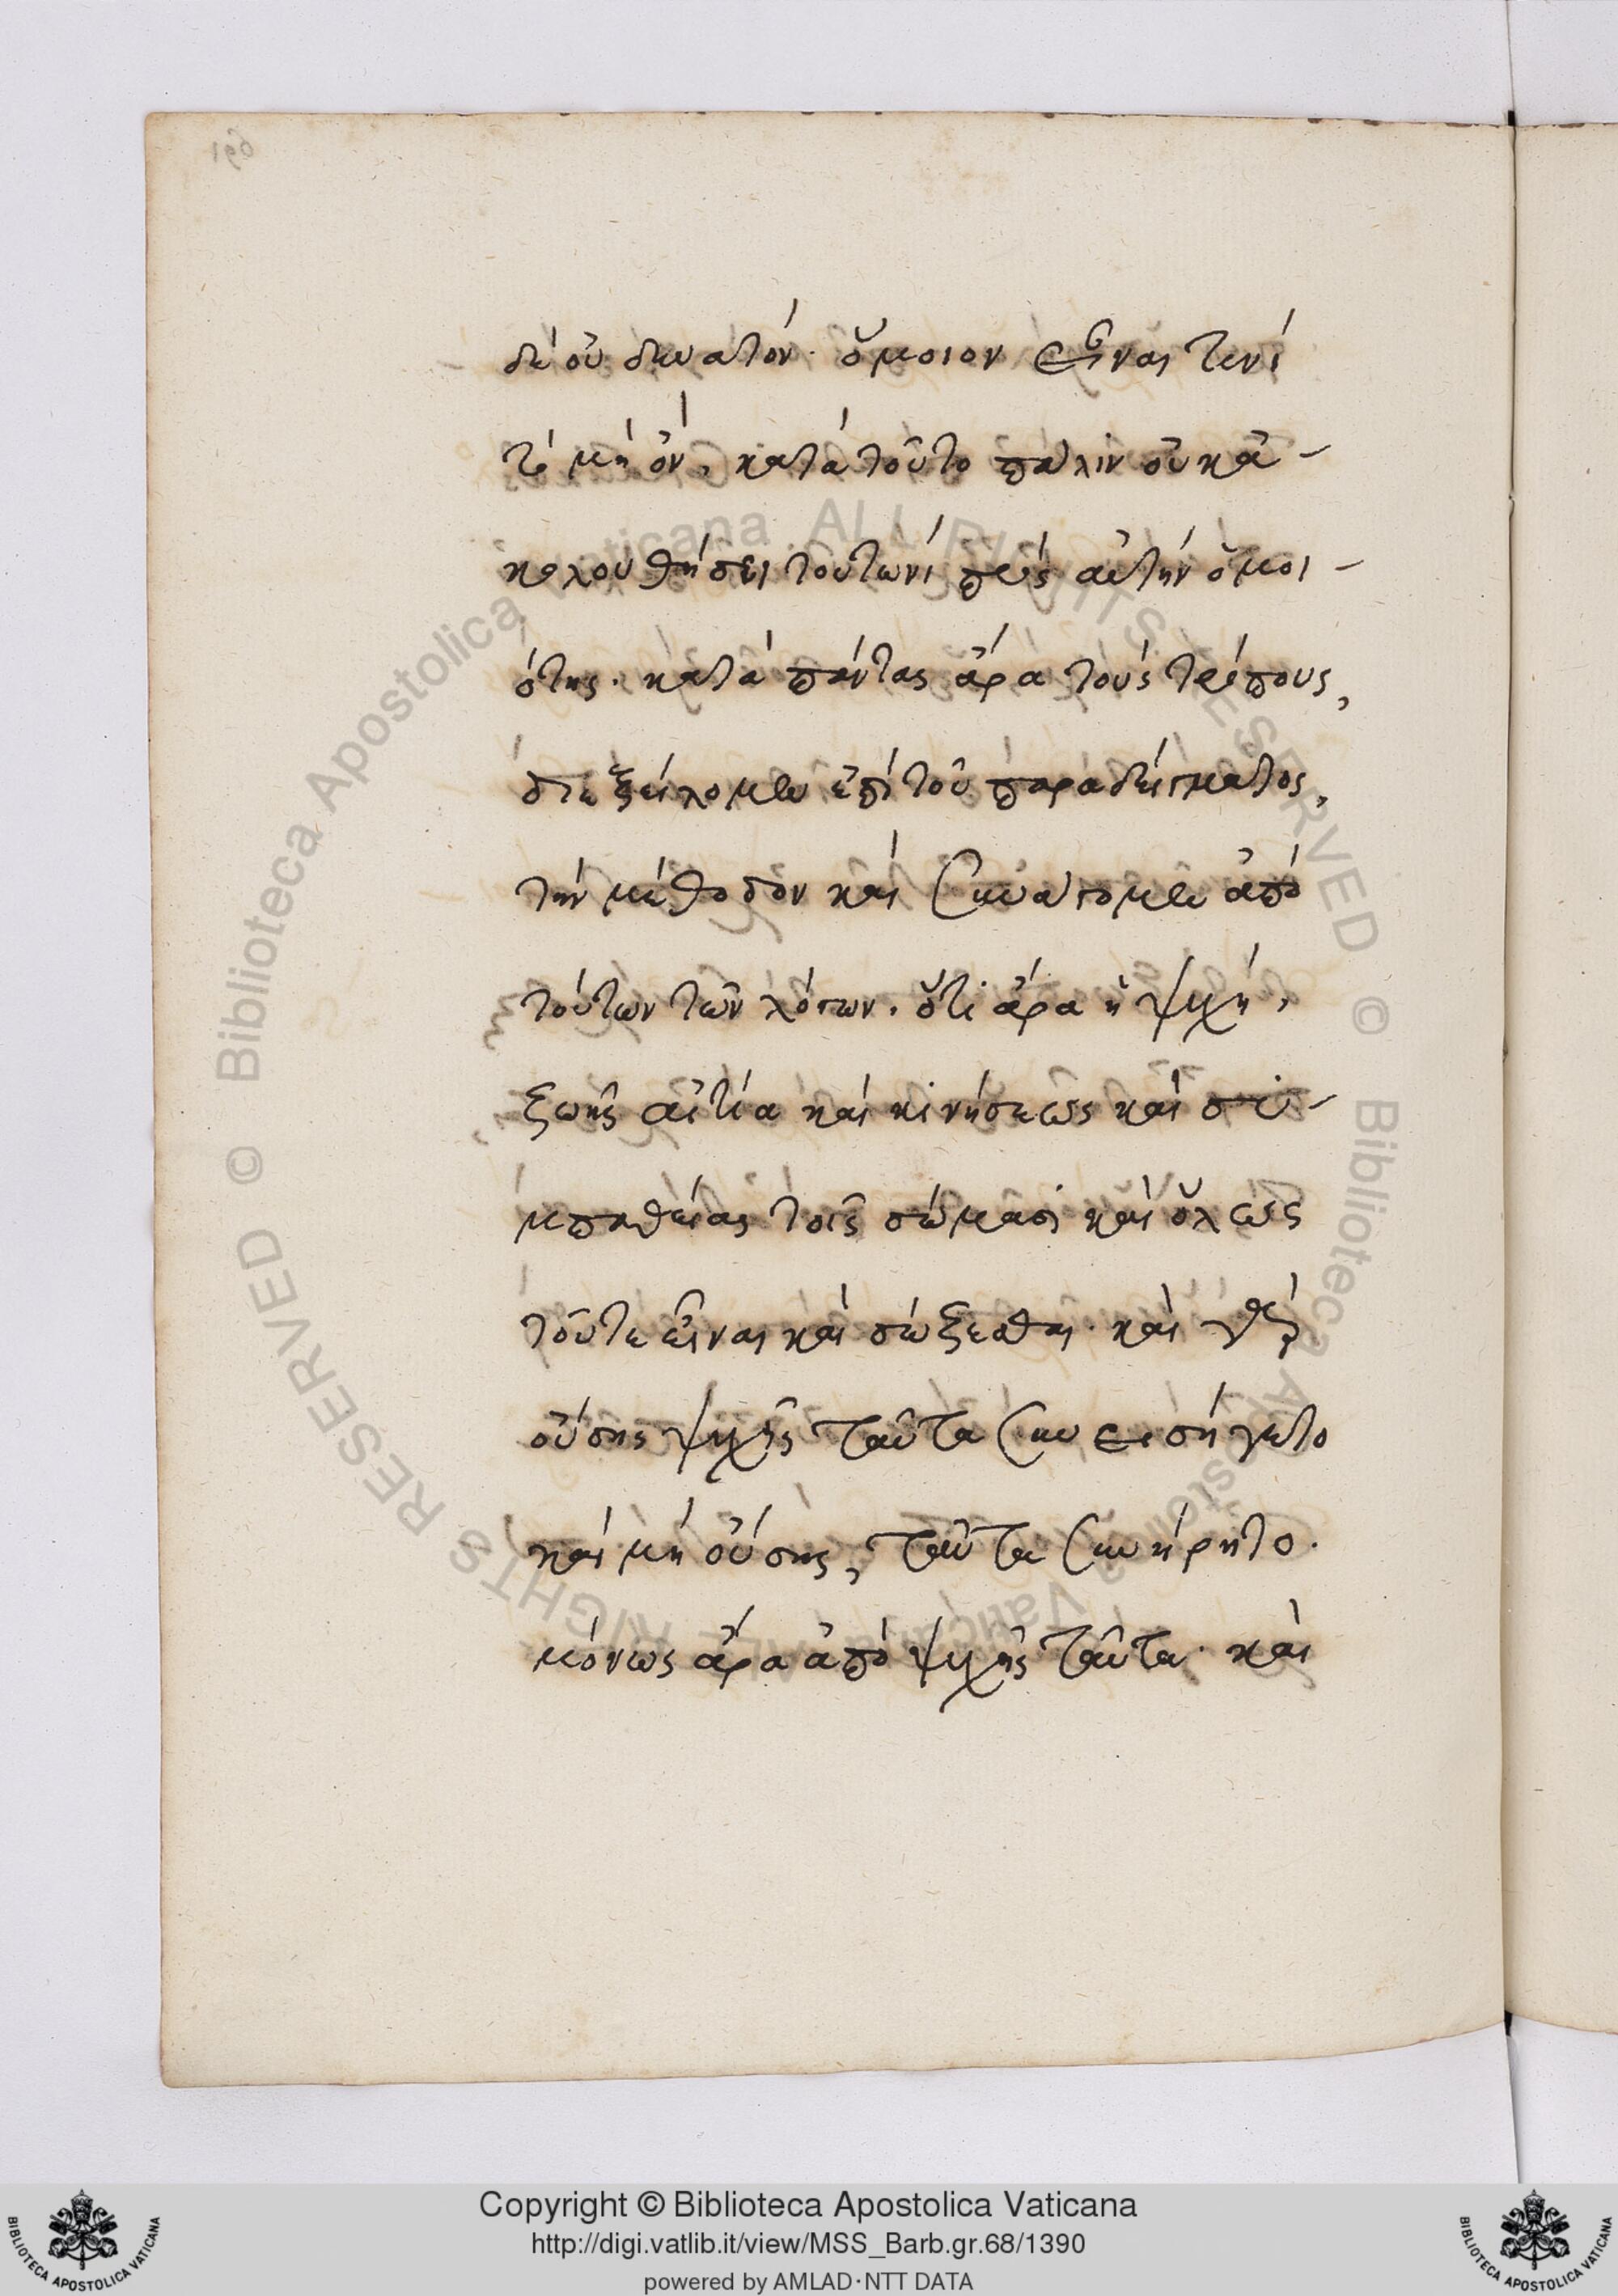 δὲ οὐ δυνατὸν· ὅμοιον εἶναι τινὶ
τὸ μὴ ὄν, κατὰ τοῦτο πάλιν οὐκ ἀ-
κολουθήσει τουτωνὶ πρὸς αὐτὴν ὁμοι-
ότης. κατὰ πάντας ἄρα τοὺς τρόπους,
διεξείλομεν ἐπὶ τοῦ παραδείγματος,
τὴν μέθοδον καὶ συνάγομεν ἀπὸ
τούτων τῶν λόγων. ὅτι ἄρα ἡ ψυχὴ,
ζωῆς αἰτία καὶ κινήσεως καὶ συ-
μπαθείας τοῖς σώμασι καὶ ὅλως
τοῦ τε εἶναι καὶ σώζεσθαι. καὶ γὰρ
οὔσης ψυχῆς ταῦτα συνεισήγετο
καὶ μὴ οὔσης, ταῦτα συνήρητο.
μόνως ἄρα ἀπὸ ψυχῆς ταῦτα. καὶ
169
Biblioteca Apostolica Vaticana ALL RIGHTS RESERVED © Biblioteca Apostolica Vaticana ALL RIGHTS RESERVED ©
Copyright © Biblioteca Apostolica Vaticana
http://digi.vatlib.it/view/MSS_Barb.gr.68/1390
powered by AMLAD·NTT DATA
BIBLIOTECA APOSTOLICA VATICANA
BIBLIOTECA APOSTOLICA VATICANA